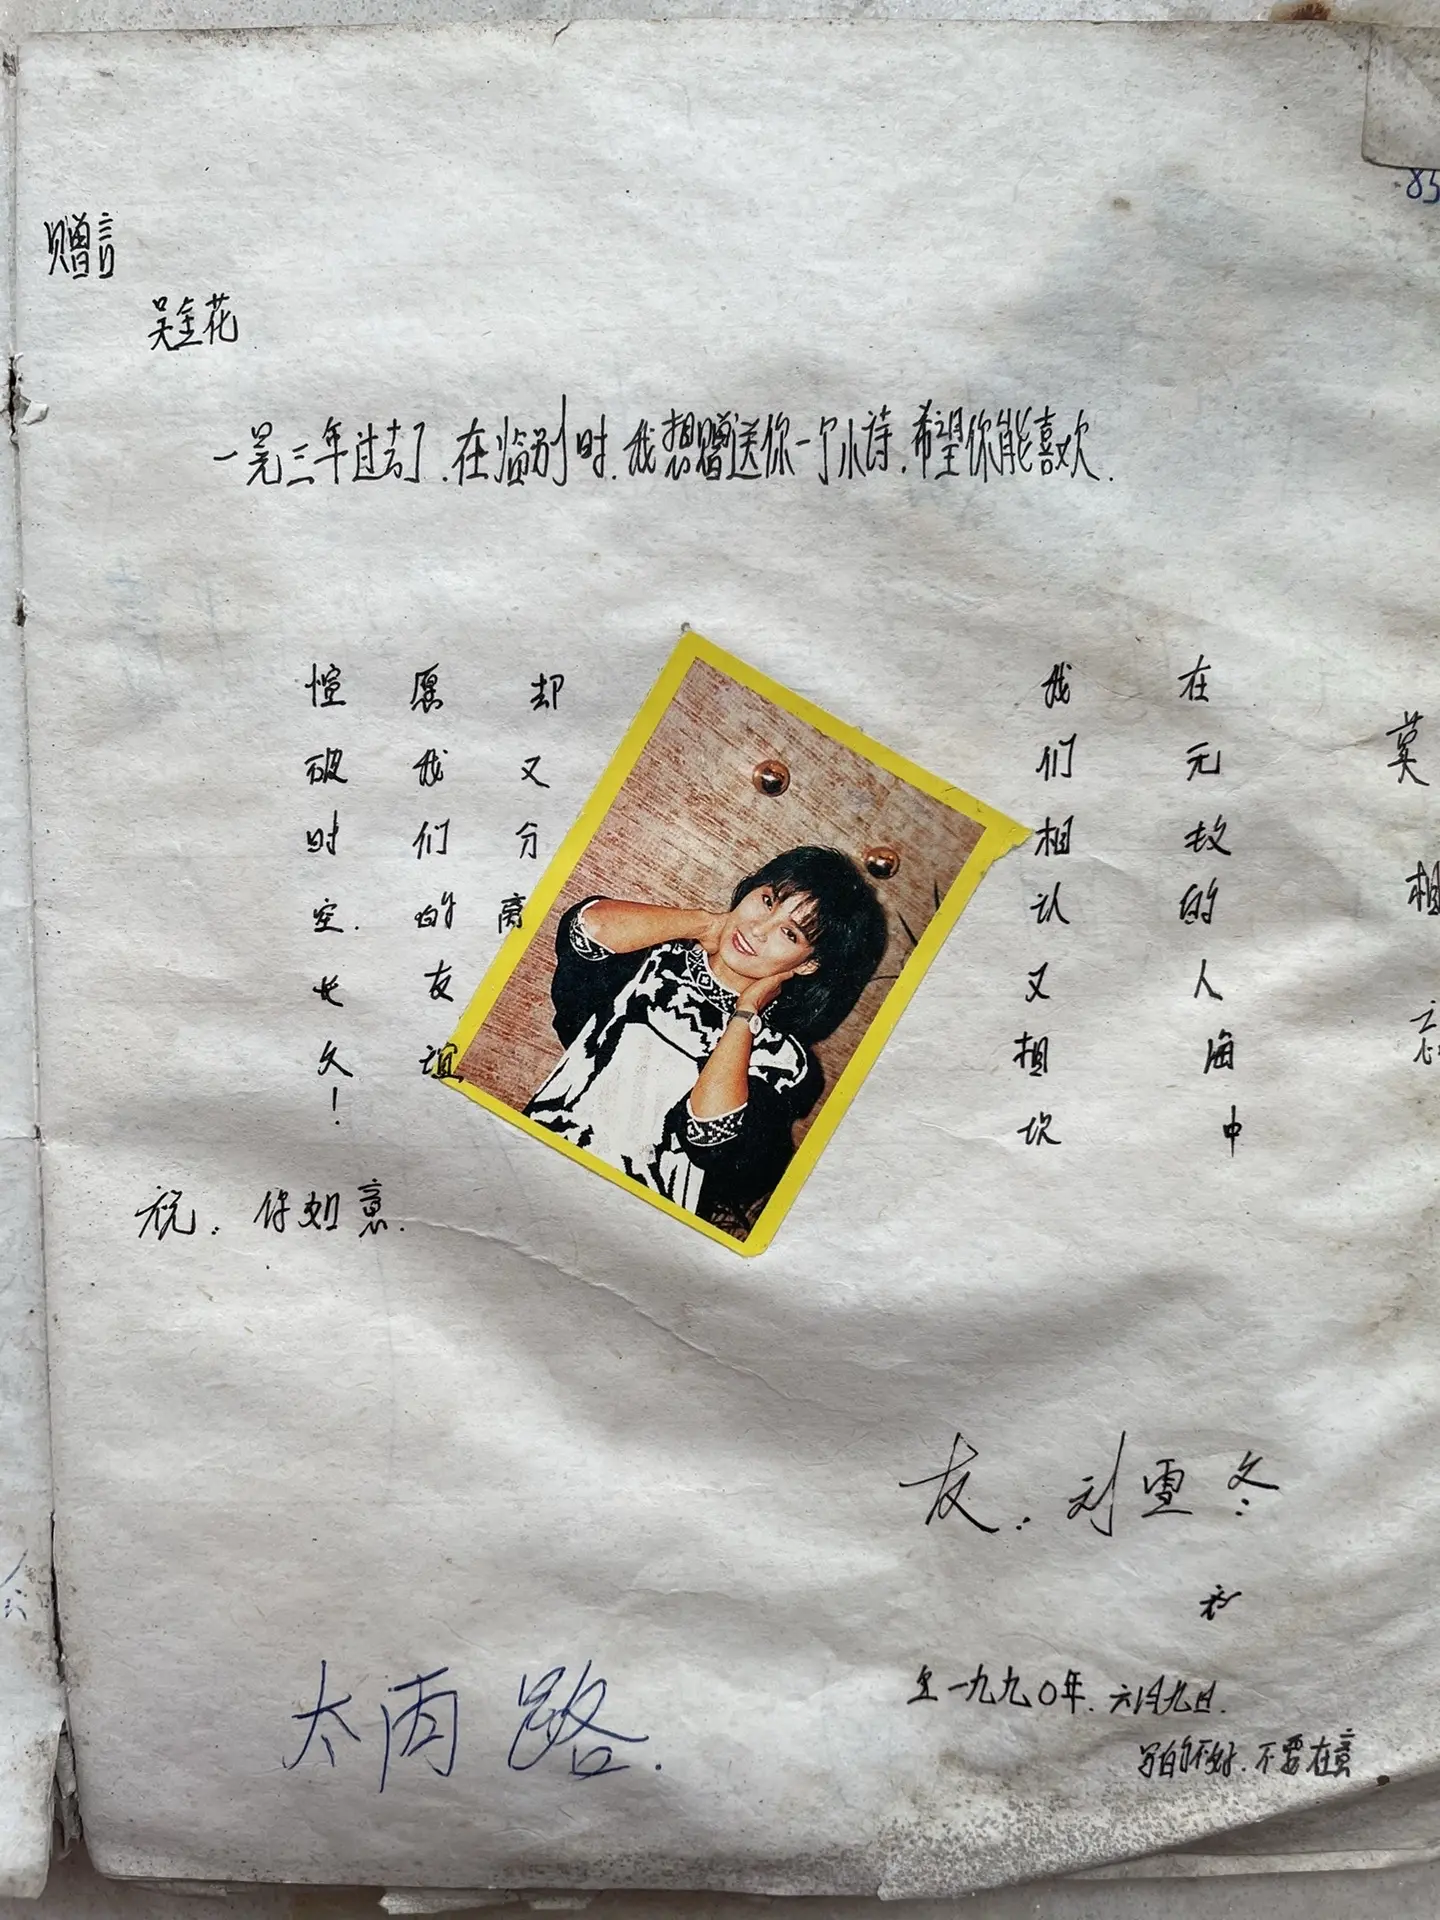 85
赠言
吴金花
一晃三年过去了.在临别时.我想赠送你一个小诗.希望你能喜欢.
莫相忘
在无故的人海中
我们相认又相
却又分离
愿我们的友谊
憧破时空.长久!
祝:你如意.
友:刘雪冬
一九九〇年.六月九日.
写的不好.不要在意
太丙路.